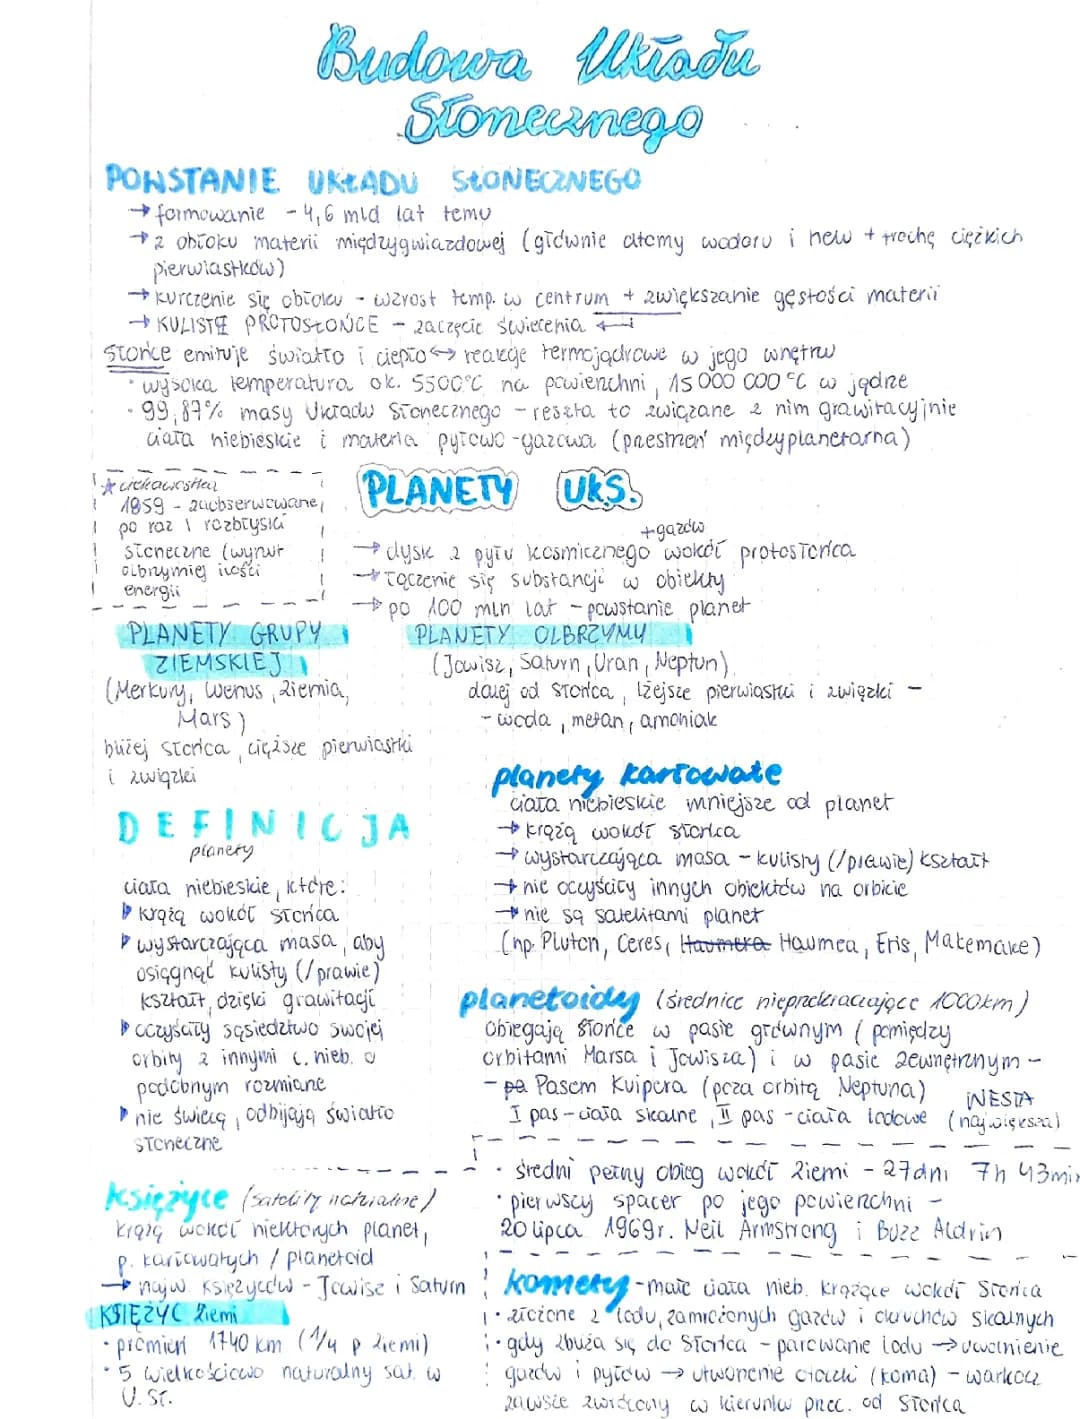 Budowa Układu
Słonecznego
POWSTANIE UKŁADU SŁONECZNEGO
→ formowanie - 4,6 mld lat temu
→ z obłoku materii międzygwiazdowej (głównie atomy wodoru i helu + trochę ciężkich
pierwiastków)
→ kurczenie się obłoku - wzrost temp. w centrum + zwiększanie gęstości materii
→ KULISTE PROTOSŁOŃCE - zaczęcie świecenia ←
Słońce emituje światło i ciepło ↔ reakcje termojądrowe w jego wnętrzu
• wysoka temperatura ok. 5500°C na powierzchni, 15 000 000 °C w jądrze
• 99,87% masy Układu Słonecznego - reszta to związane z nim grawitacyjnie
ciała niebieskie i materia pyłowo-gazowa (przestrzeń międzyplanetarna)
★ ciekawostka
1859 - zaobserwowane
po raz 1 rozbłyski
słoneczne (wyrzut
olbrzymiej ilości
energii
PLANETY UKS.
+gazów
→ dysk z pyłu kosmicznego wokół protosłońca
→ łączenie się substancji w obiekty
→ po 100 mln lat - powstanie planet
PLANETY GRUPY
ZIEMSKIEJ
(Merkury, Wenus, Ziemia,
Mars)
bliżej Słońca, cięższe pierwiastki
i związki
PLANETY OLBRZYMY
(Jowisz, Saturn, Uran, Neptun)
dalej od Słońca, lżejsze pierwiastki i związki -
- woda, metan, amoniak
DEFINICJA
planety
ciała niebieskie, które:
▶ krążą wokół Słońca
▶ wystarczająca masa, aby
osiągnąć kulisty (/prawie)
kształt, dzięki grawitacji
▶ oczyściły sąsiedztwo swojej
orbity z innymi c. nieb. o
podobnym rozmiarze
▶ nie świecą, odbijają światło
słoneczne
planety karłowate
ciała niebieskie mniejsze od planet
→ krążą wokół Słońca
→ wystarczająca masa - kulisty (/prawie) kształt
→ nie oczyściły innych obiektów na orbicie
→ nie są satelitami planet
(np. Pluton, Ceres, Haumea, Eris, Makemake)
planetoidy (średnice nieprzekraczające 1000km)
obiegają Słońce w pasie głównym (pomiędzy
orbitami Marsa i Jowisza) i w pasie zewnętrznym -
- pa Pasem Kuipera (poza orbitą Neptuna)
I pas - ciała skalne, II pas - ciała lodowe
WESTA
(największa)
Księżyce (satelity naturalne)
krążą wokół niektórych planet,
p. karłowatych / planetoid
→ najw. księżyców - Jowisz i Saturn
KSIĘŻYC Ziemi
• promień 1740 km (1/4 p Ziemi)
• 5 wielkościowo naturalny sat. w
U. Sł.
• średni pełny obieg wokół Ziemi - 27dni 7h 43min
• pierwszy spacer po jego powierzchni -
20 lipca 1969r. Neil Armstrong i Buzz Aldrin
komety - małe ciała nieb. krążące wokół Słońca
• złożone z lodu, zamrożonych gazów i okruchów skalnych
• gdy zbliża się do Słońca - parowanie lodu → uwolnienie
gazów i pyłów → utworzenie otoczki (koma) - warkocz
zawsze zwrócony w kierunku przec. od Słońca